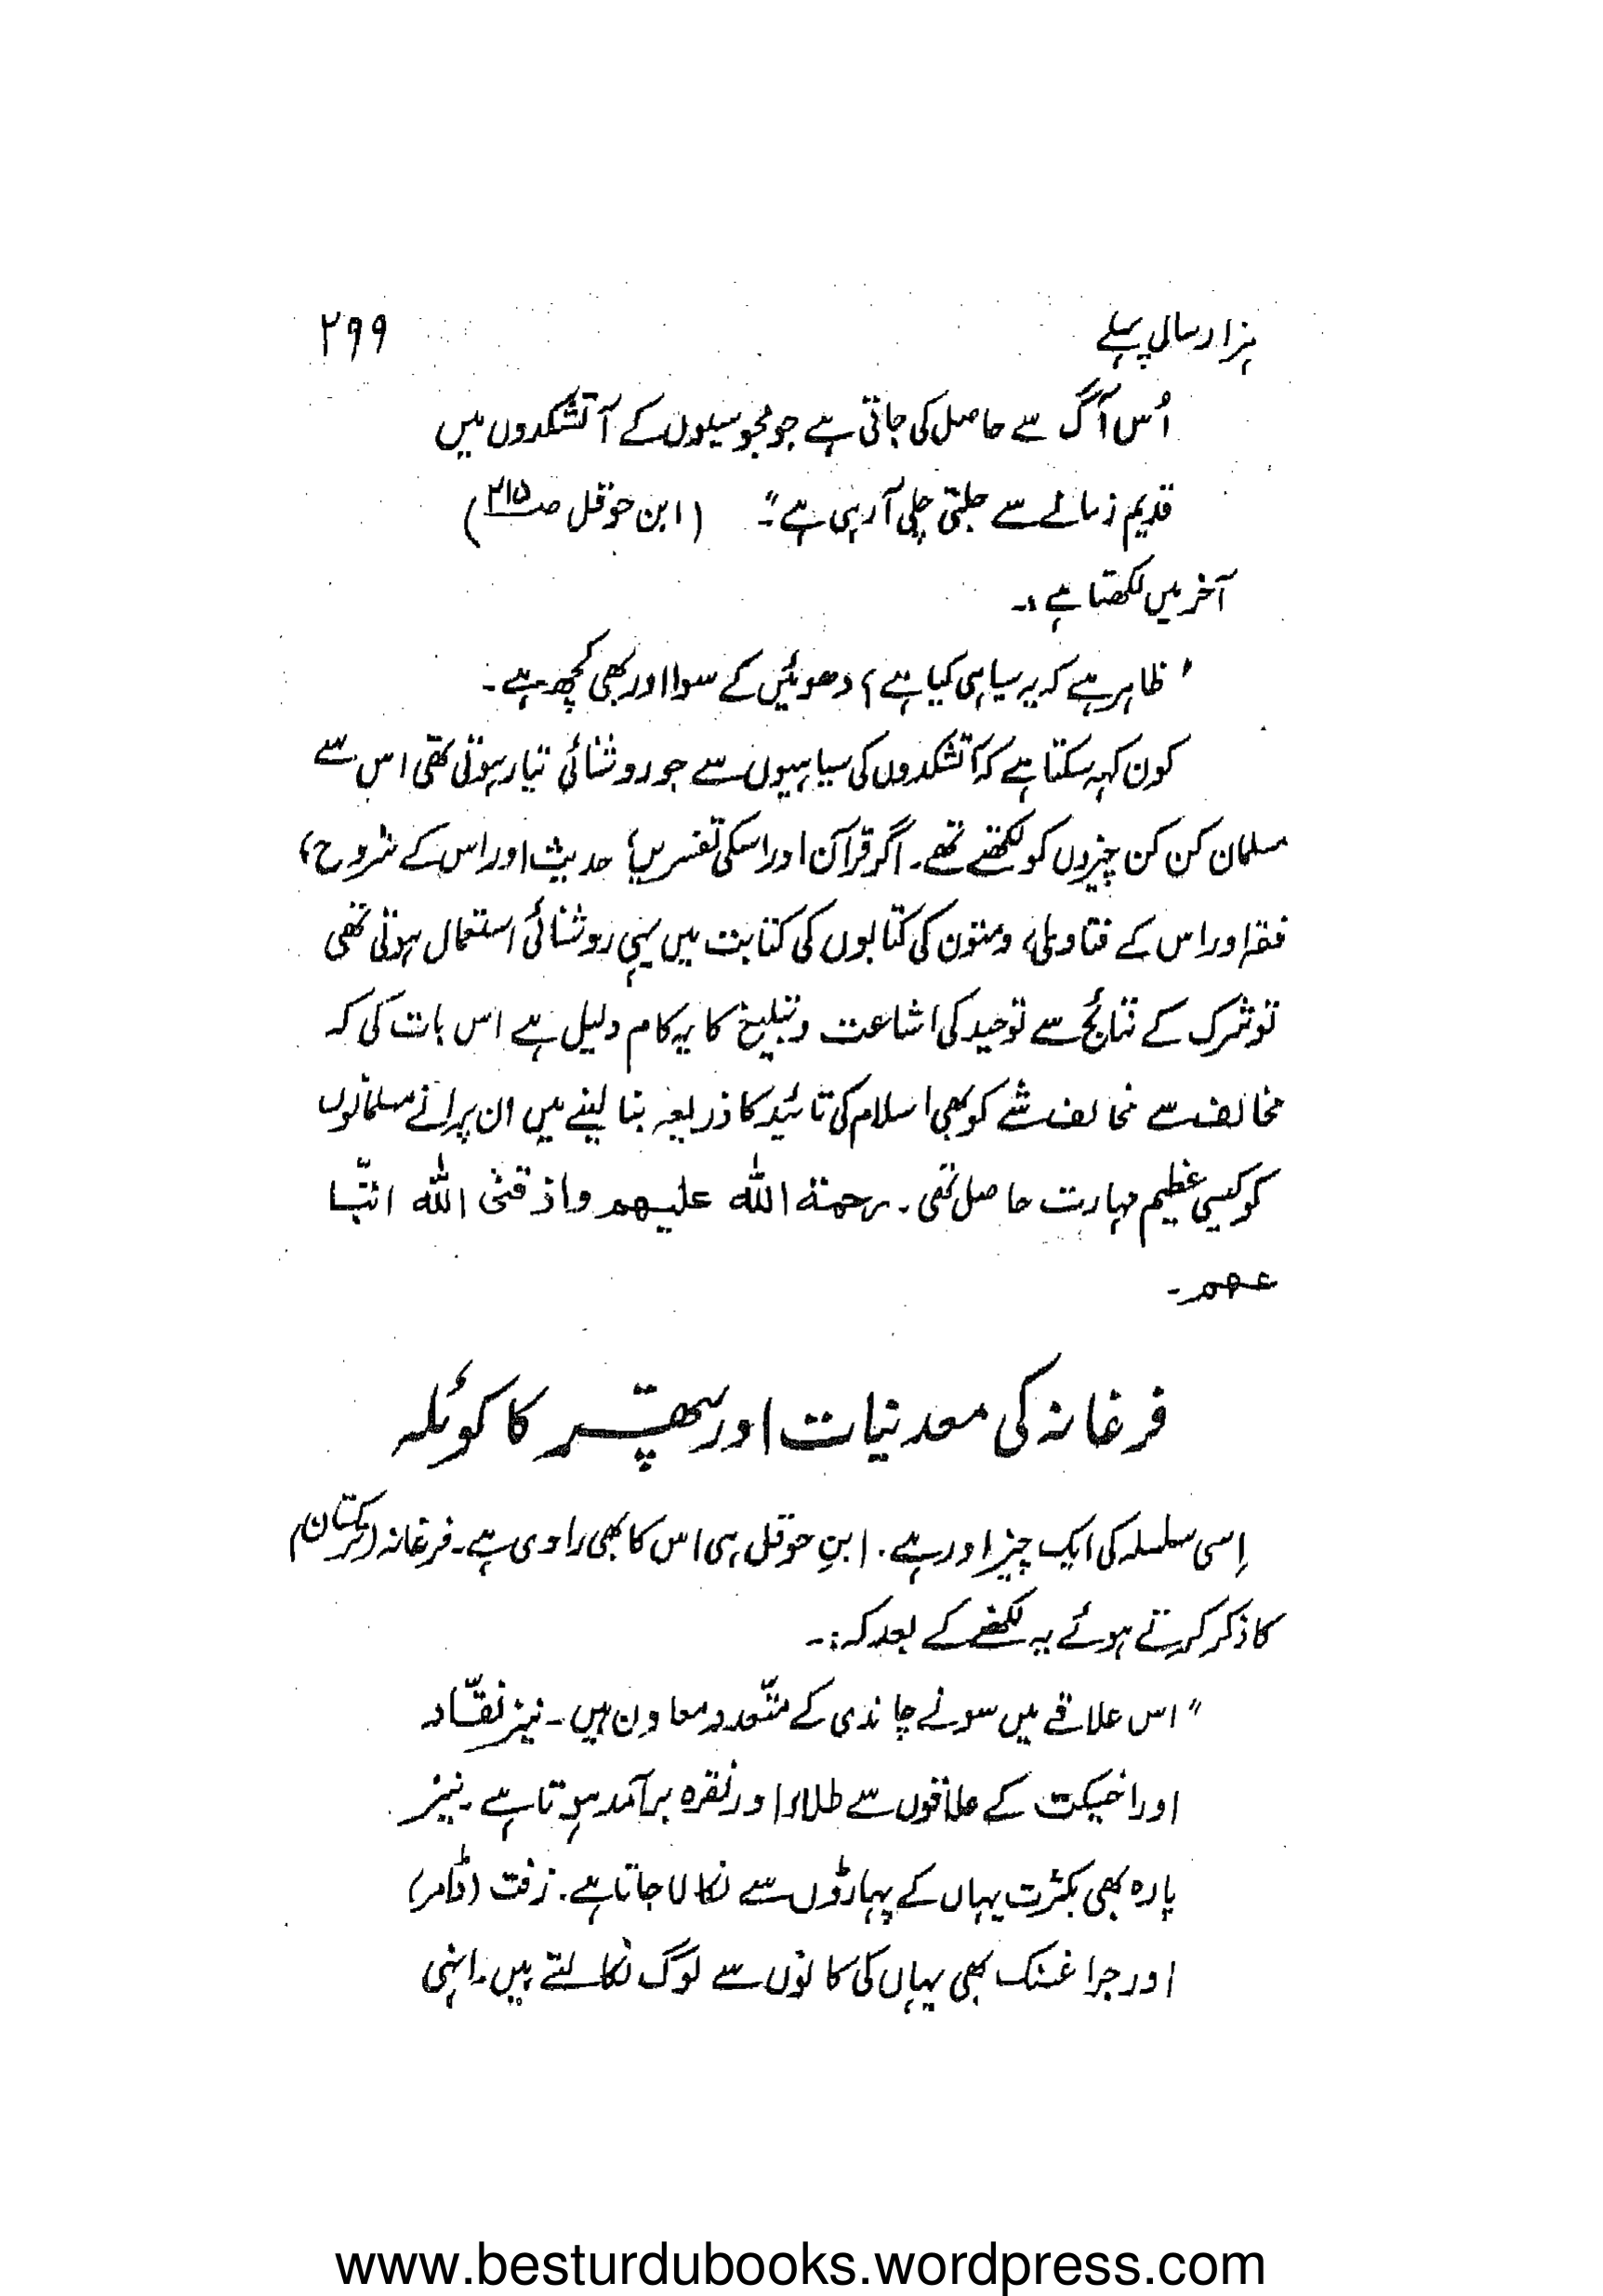 ہزار سال پہلے ۲۹۹
اُس آگ سے حاصل کی جاتی ہے جو مجوسیوں کے آتشکدوں میں
قدیم زمانے سے جلتی چلی آرہی ہے"۔ (ابن حوقل صـ۲۱۵)
آخر میں لکھتا ہے:۔
"ظاہر ہے کہ یہ سیاہی کیا ہے؟ دھوئیں کے سوا اور بھی کچھ ہے۔
کون کہہ سکتا ہے کہ آتشکدوں کی سیاہیوں سے جو روشنائی تیار ہوتی تھی اس سے
مسلمان کن کن چیزوں کو لکھتے تھے۔ اگر قرآن اور اسکی تفسریں، حدیث اور اس کے شروح،
فقہ اور اس کے فتاویٰ، ومتون کی کتابوں کی کتابت میں یہی روشنائی استعمال ہوتی تھی
تو شرک کے نتائج سے توحید کی اشاعت وتبلیغ کا یہ کام دلیل ہے اس بات کی کہ
مخالف سے مخالف شے کو بھی اسلام کی تائید کا ذریعہ بنا لینے میں ان پرانے مسلمانوں
کو کیسی عظیم مہارت حاصل تھی۔ رحمة الله عليهم واذقنی الله اتبا
عهم۔
فرغانہ کی معدنیات اور پتھر کا کوئلہ
اِسی سلسلہ کی ایک چیز اور ہے۔ ابنِ حوقل ہی اس کا بھی راوی ہے۔ فرغانہ (ترکستان)
کا ذکر کرتے ہوئے یہ لکھنے کے بعد کہ:۔
"اس علاقے میں سونے چاندی کے متعدد معاون ہیں۔ نیز نقّاد
اور اخیکت کے علاقوں سے طلاء اور نقرہ برآمد ہوتا ہے۔ نیز
پارہ بھی بکثرت یہاں کے پہاڑوں سے نکالا جاتا ہے۔ زفت (ڈامر)
اور جراغسنک بھی یہاں کی کانوں سے لوگ نکالتے ہیں۔ انہی
www.besturdubooks.wordpress.com